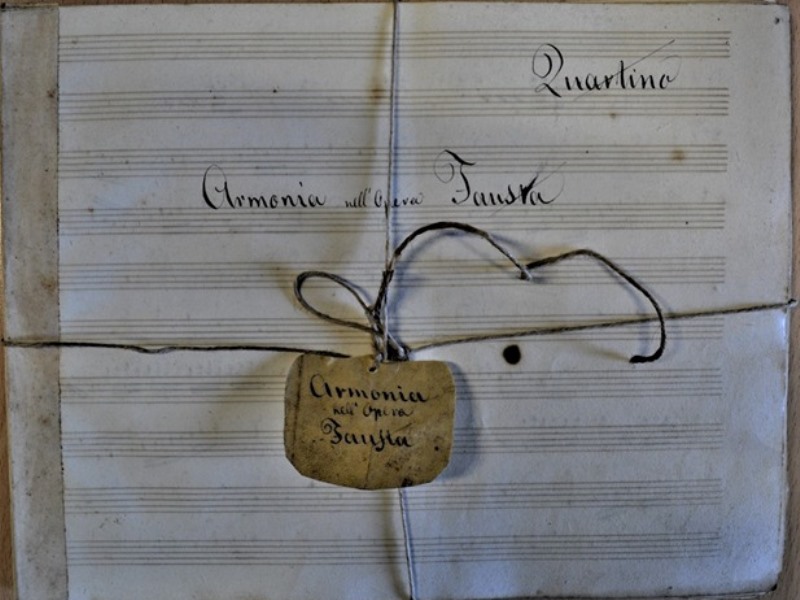 Quartino
Armonia nell' Opera Fausta
Armonia
nell' Opera
Fausta